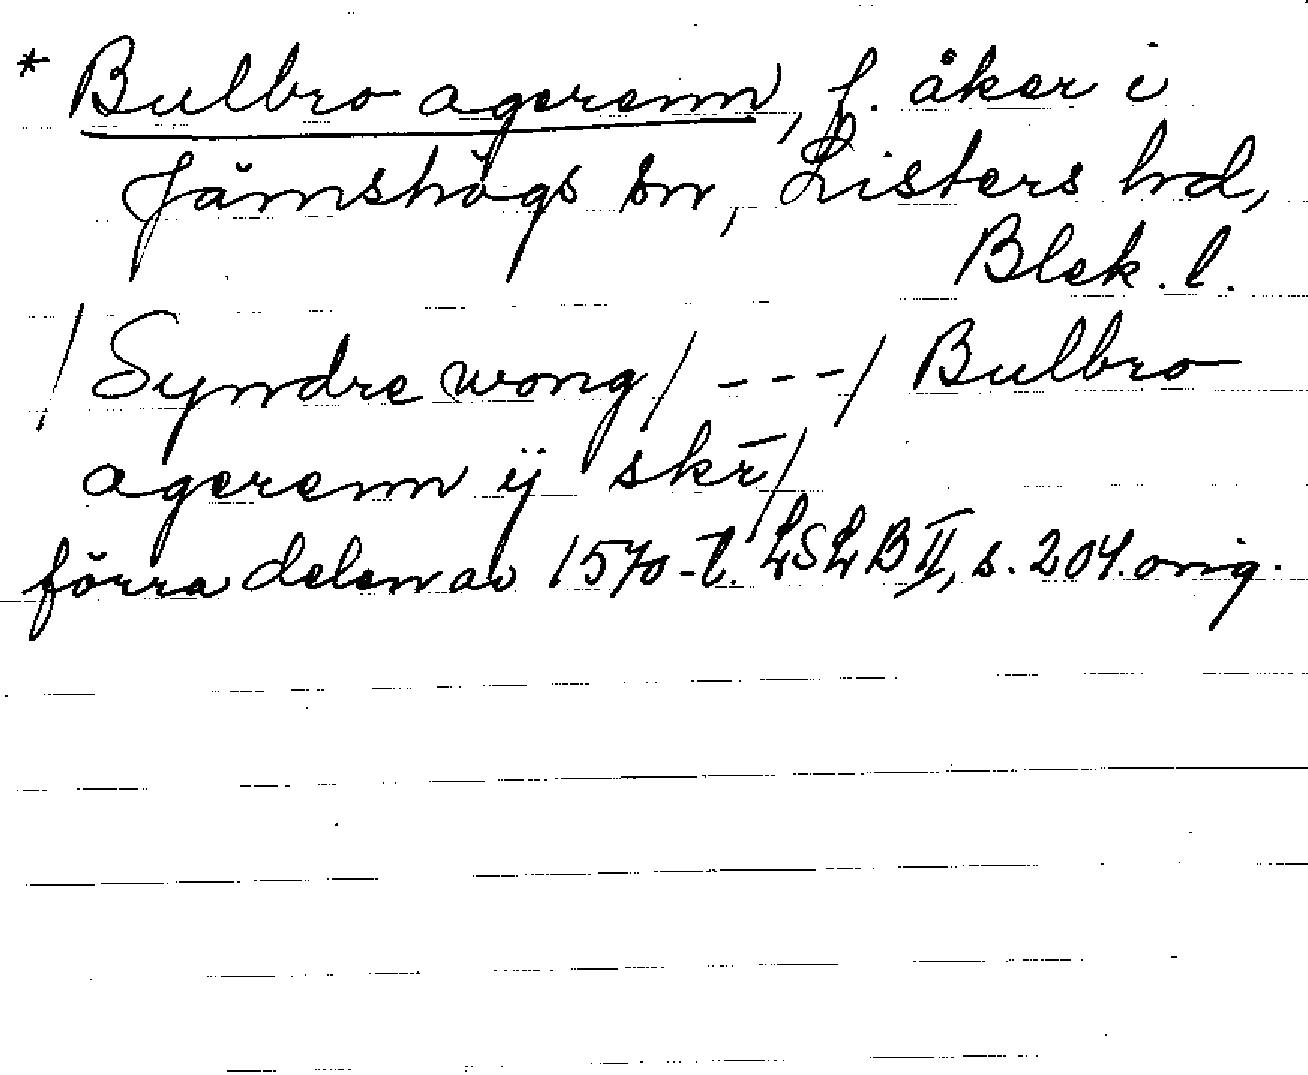 * Bulbro agerenn, f. åker i
Jämshögs sn, Listers hd,
Blek. l.
/Syndre wong/ - - - / Bulbro
agerenn ÿ skr̄/
förra delen av 1570-t. LSLB II, s. 204. orig.